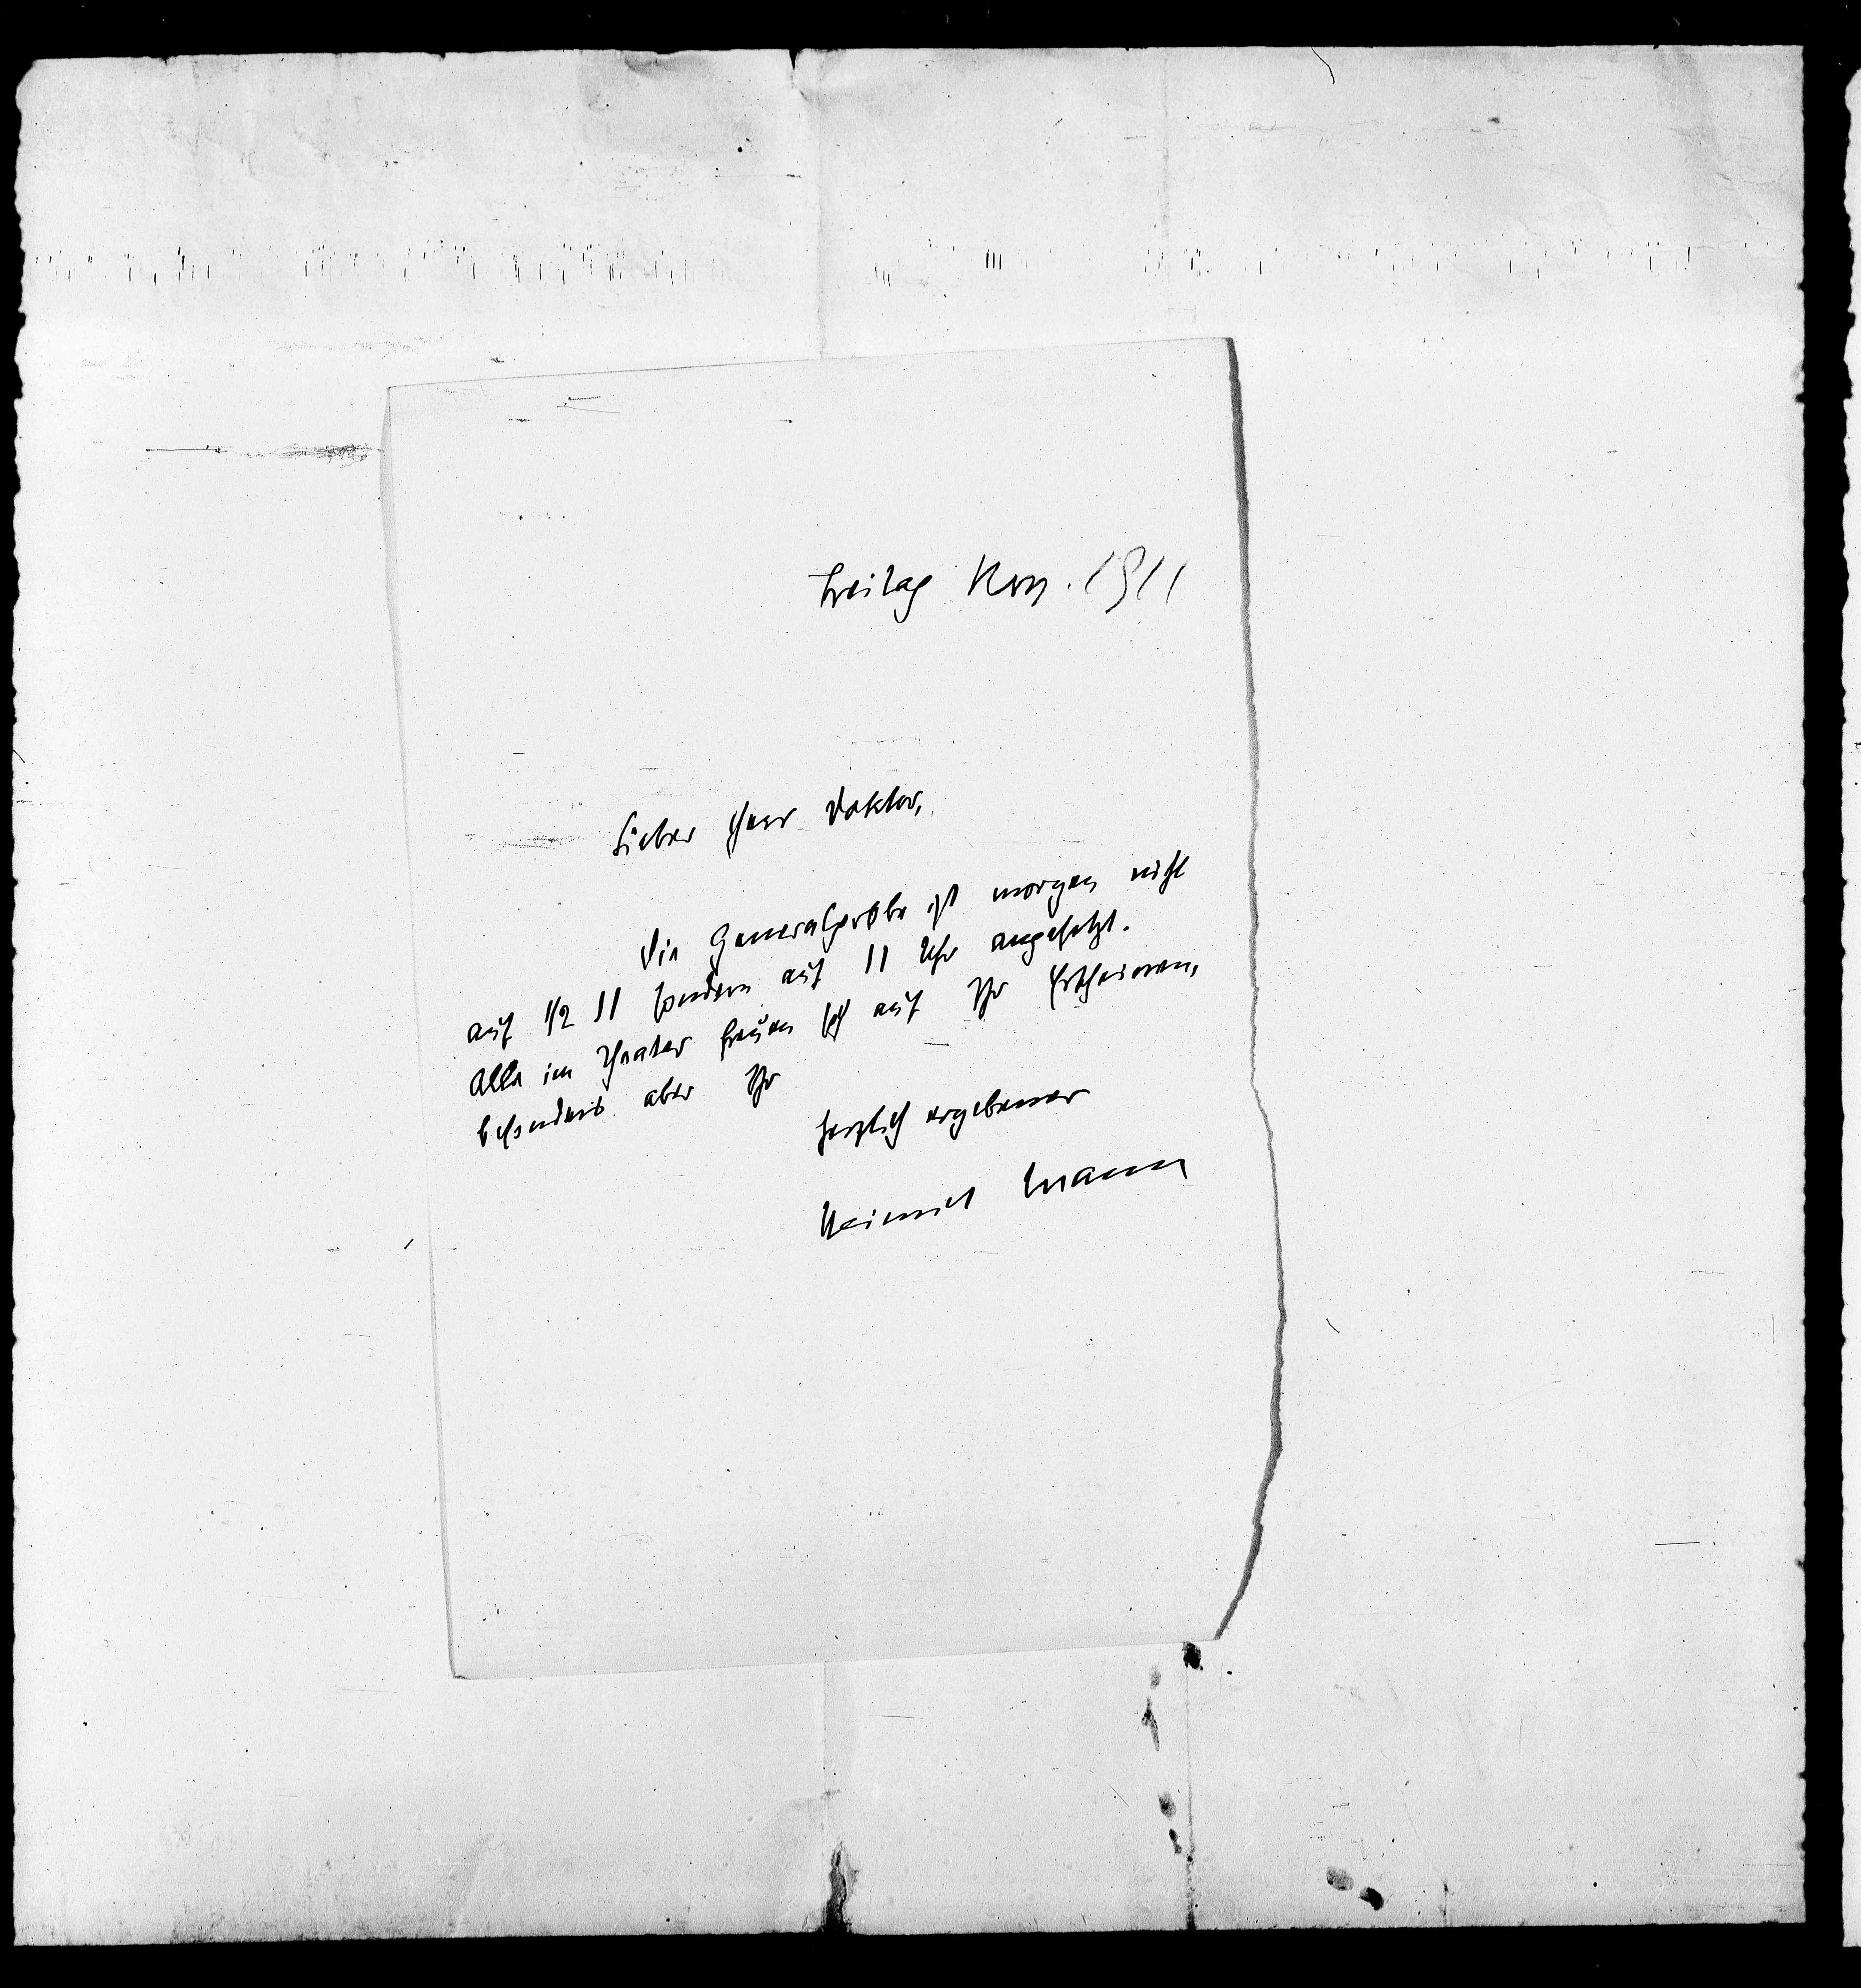 Freitag Nov. 1911
Lieber Herr Doktor,
die Generalprobe ist morgen nicht
auf 1/2 11 sondern auf 11 Uhr angesetzt.
Alle im Theater freuen sich auf Ihr Erscheinen,
besonders aber Ihr
herzlich ergebener
Heinrich Mann